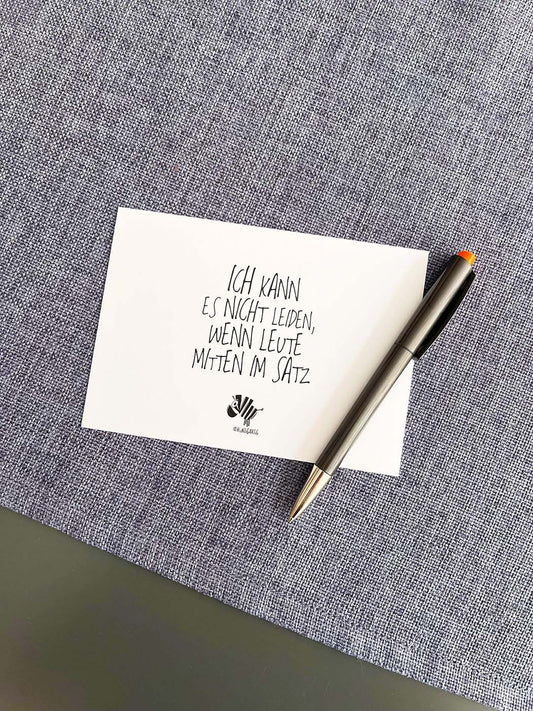 ICH KANN
ES NICHT LEIDEN,
WENN LEUTE
MITTEN IM SATZ